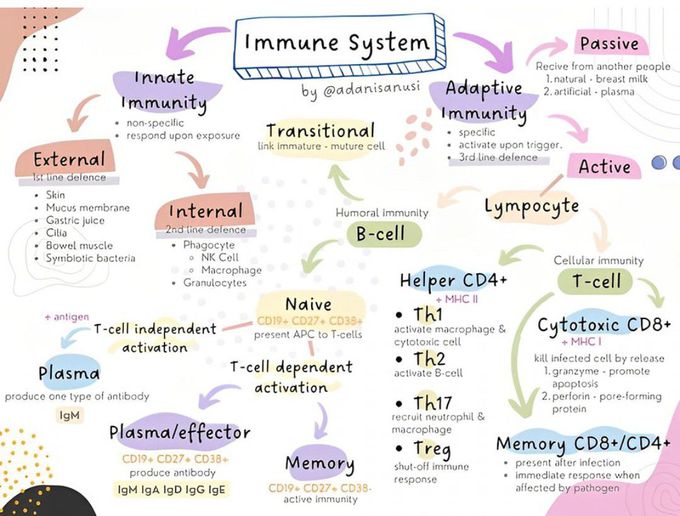 Immune System
by @adanisanusi
Innate
Immunity
• non-specific
• respond upon exposure
External
1st line defence
• Skin
• Mucus membrane
• Gastric juice
• Cilia
• Bowel muscle
• Symbiotic bacteria
Internal
2nd line defence
• Phagocyte
○ NK Cell
○ Macrophage
• Granulocytes
Transitional
link immature - muture cell
Adaptive
Immunity
• specific
• activate upon trigger.
• 3rd line defence
Passive
Recive from another people
1. natural - breast milk
2. artificial - plasma
Active
Lympocyte
Humoral immunity
B-cell
Naive
CD19+ CD27+ CD38+
present APC to T-cells
+ antigen
T-cell independent
activation
Plasma
produce one type of antibody
IgM
T-cell dependent
activation
Plasma/effector
CD19+ CD27+ CD38+
produce antibody
IgM IgA IgD IgG IgE
Memory
CD19+ CD27+ CD38-
active immunity
Cellular immunity
T-cell
Helper CD4+
+ MHC II
• Th1
activate macrophage &
cytotoxic cell
• Th2
activate B-cell
• Th17
recruit neutrophil &
macrophage
• Treg
shut-off immune
response
Cytotoxic CD8+
+ MHC I
kill infected cell by release
1. granzyme - promote
apoptosis
2. perforin - pore-forming
protein
Memory CD8+/CD4+
• present after infection
• immediate response when
affected by pathogen